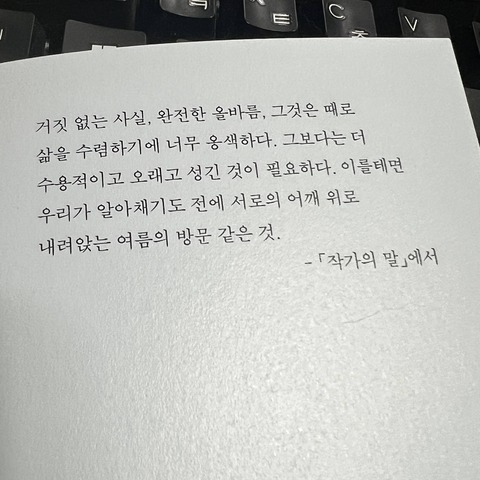 E
C
V
ㅊ
거짓 없는 사실, 완전한 올바름, 그것은 때로
삶을 수렴하기에 너무 옹색하다. 그보다는 더
수용적이고 오래고 성긴 것이 필요하다. 이를테면
우리가 알아채기도 전에 서로의 어깨 위로
내려앉는 여름의 방문 같은 것.
- 「작가의 말」에서